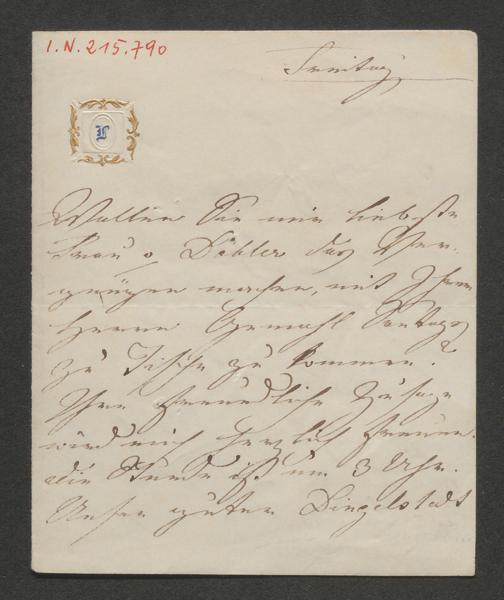 I.N. 215.790
Freitag
L
Wollen Sie mir liebste
Frau v. Döbler das Ver-
gnügen machen, mit Ihrem
Herrn Gemahl Sontags
zu Tische zu kommen?
Ihre freundliche Zusage
wird mich herzlich freuen.
die Stunde ist um 3 Uhr.
Unser guter Dingelstedt